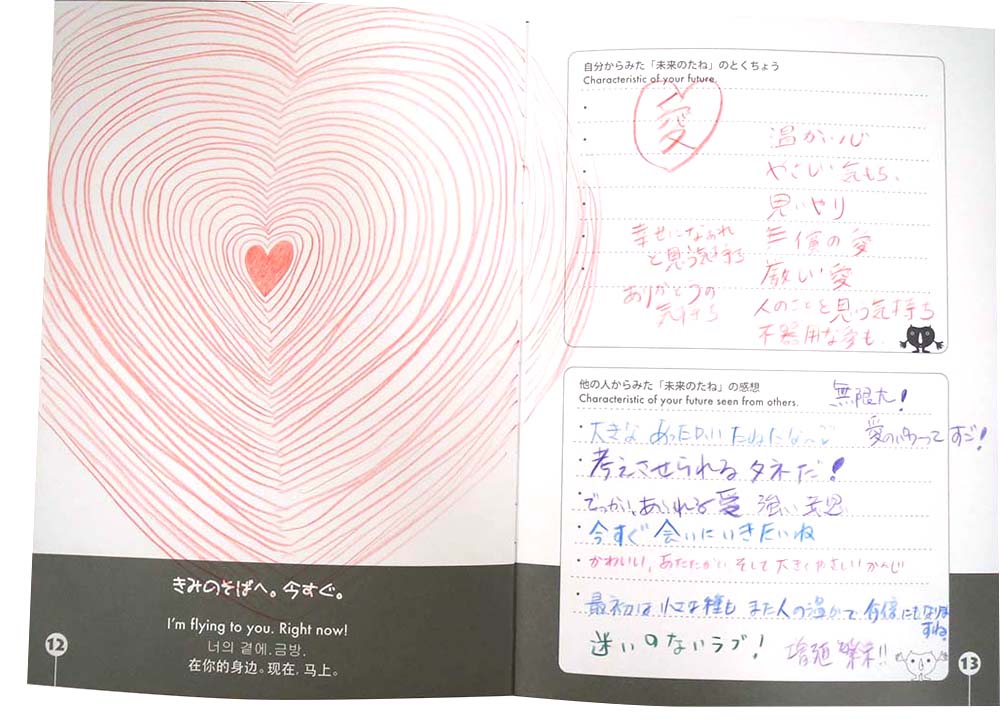 きみのそばへ。今すぐ。
I'm flying to you. Right now!
너의 곁에.금방.
在你的身边。现在,马上。
12
自分からみた「未来のたね」のとくちょう
Characteristic of your future.
愛
温かい心
やさしい気もち、
思いやり
幸せになぁれ
と思う気持ち
ありがとうの
気持ち
の愛
厳しい愛
人のことを思う気持ち
不器用な愛も
他の人からみた「未来のたね」の感想
Characteristic of your future seen from others.
無限大!
大きな あったかい たねだな〜
愛のパワーって すご!
考えさせられるタネだ!
でっかい、あふれる愛 強い
今すぐ 会いにいきたいね
かわいい, あたたかい そして 大きくやさしい かんじ
最初は 小さな種も また人の温かさで 何倍にもなりま
すね。
迷いのないラブ!
13